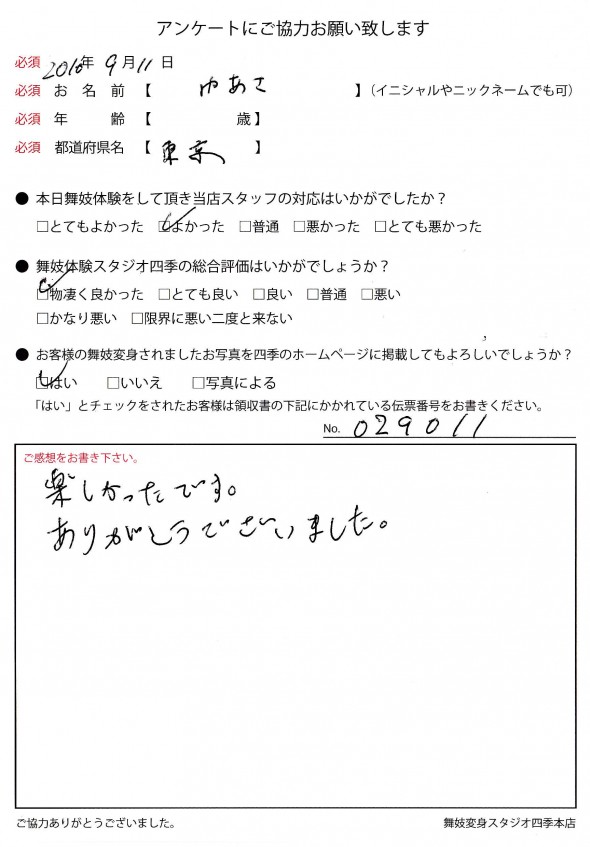 アンケートにご協力お願い致します
必須 2010年 9月11日
必須 お名前【 ゆあさ 】（イニシャルやニックネームでも可）
必須 年齢【 歳】
必須 都道府県名【 東京 】
● 本日舞妓体験をして頂き当店スタッフの対応はいかがでしたか？
□とてもよかった ☑よかった □普通 □悪かった □とても悪かった
● 舞妓体験スタジオ四季の総合評価はいかがでしょうか？
☑物凄く良かった □とても良い □良い □普通 □悪い
□かなり悪い □限界に悪い二度と来ない
● お客様の舞妓変身されましたお写真を四季のホームページに掲載してもよろしいでしょうか？
☑はい □いいえ □写真による
「はい」とチェックをされたお客様は領収書の下記にかかれている伝票番号をお書きください。
No. 029011
ご感想をお書き下さい。
楽しかったです。
ありがとうございました。
ご協力ありがとうございました。 舞妓変身スタジオ四季本店